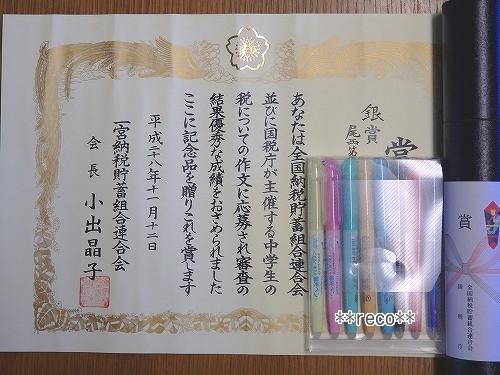 賞
銀賞
尾西第
あなたは全国納税貯蓄組合連合会
並びに国税庁が主催する中学生の
税についての作文に応募され審査の
結果優秀な成績をおさめられました
ここに記念品を贈りこれを賞します
平成二十八年十一月十二日
一宮納税貯蓄組合連合会
会長 小出晶子
賞
全国納税貯蓄組合連合会
国税庁
**reco**